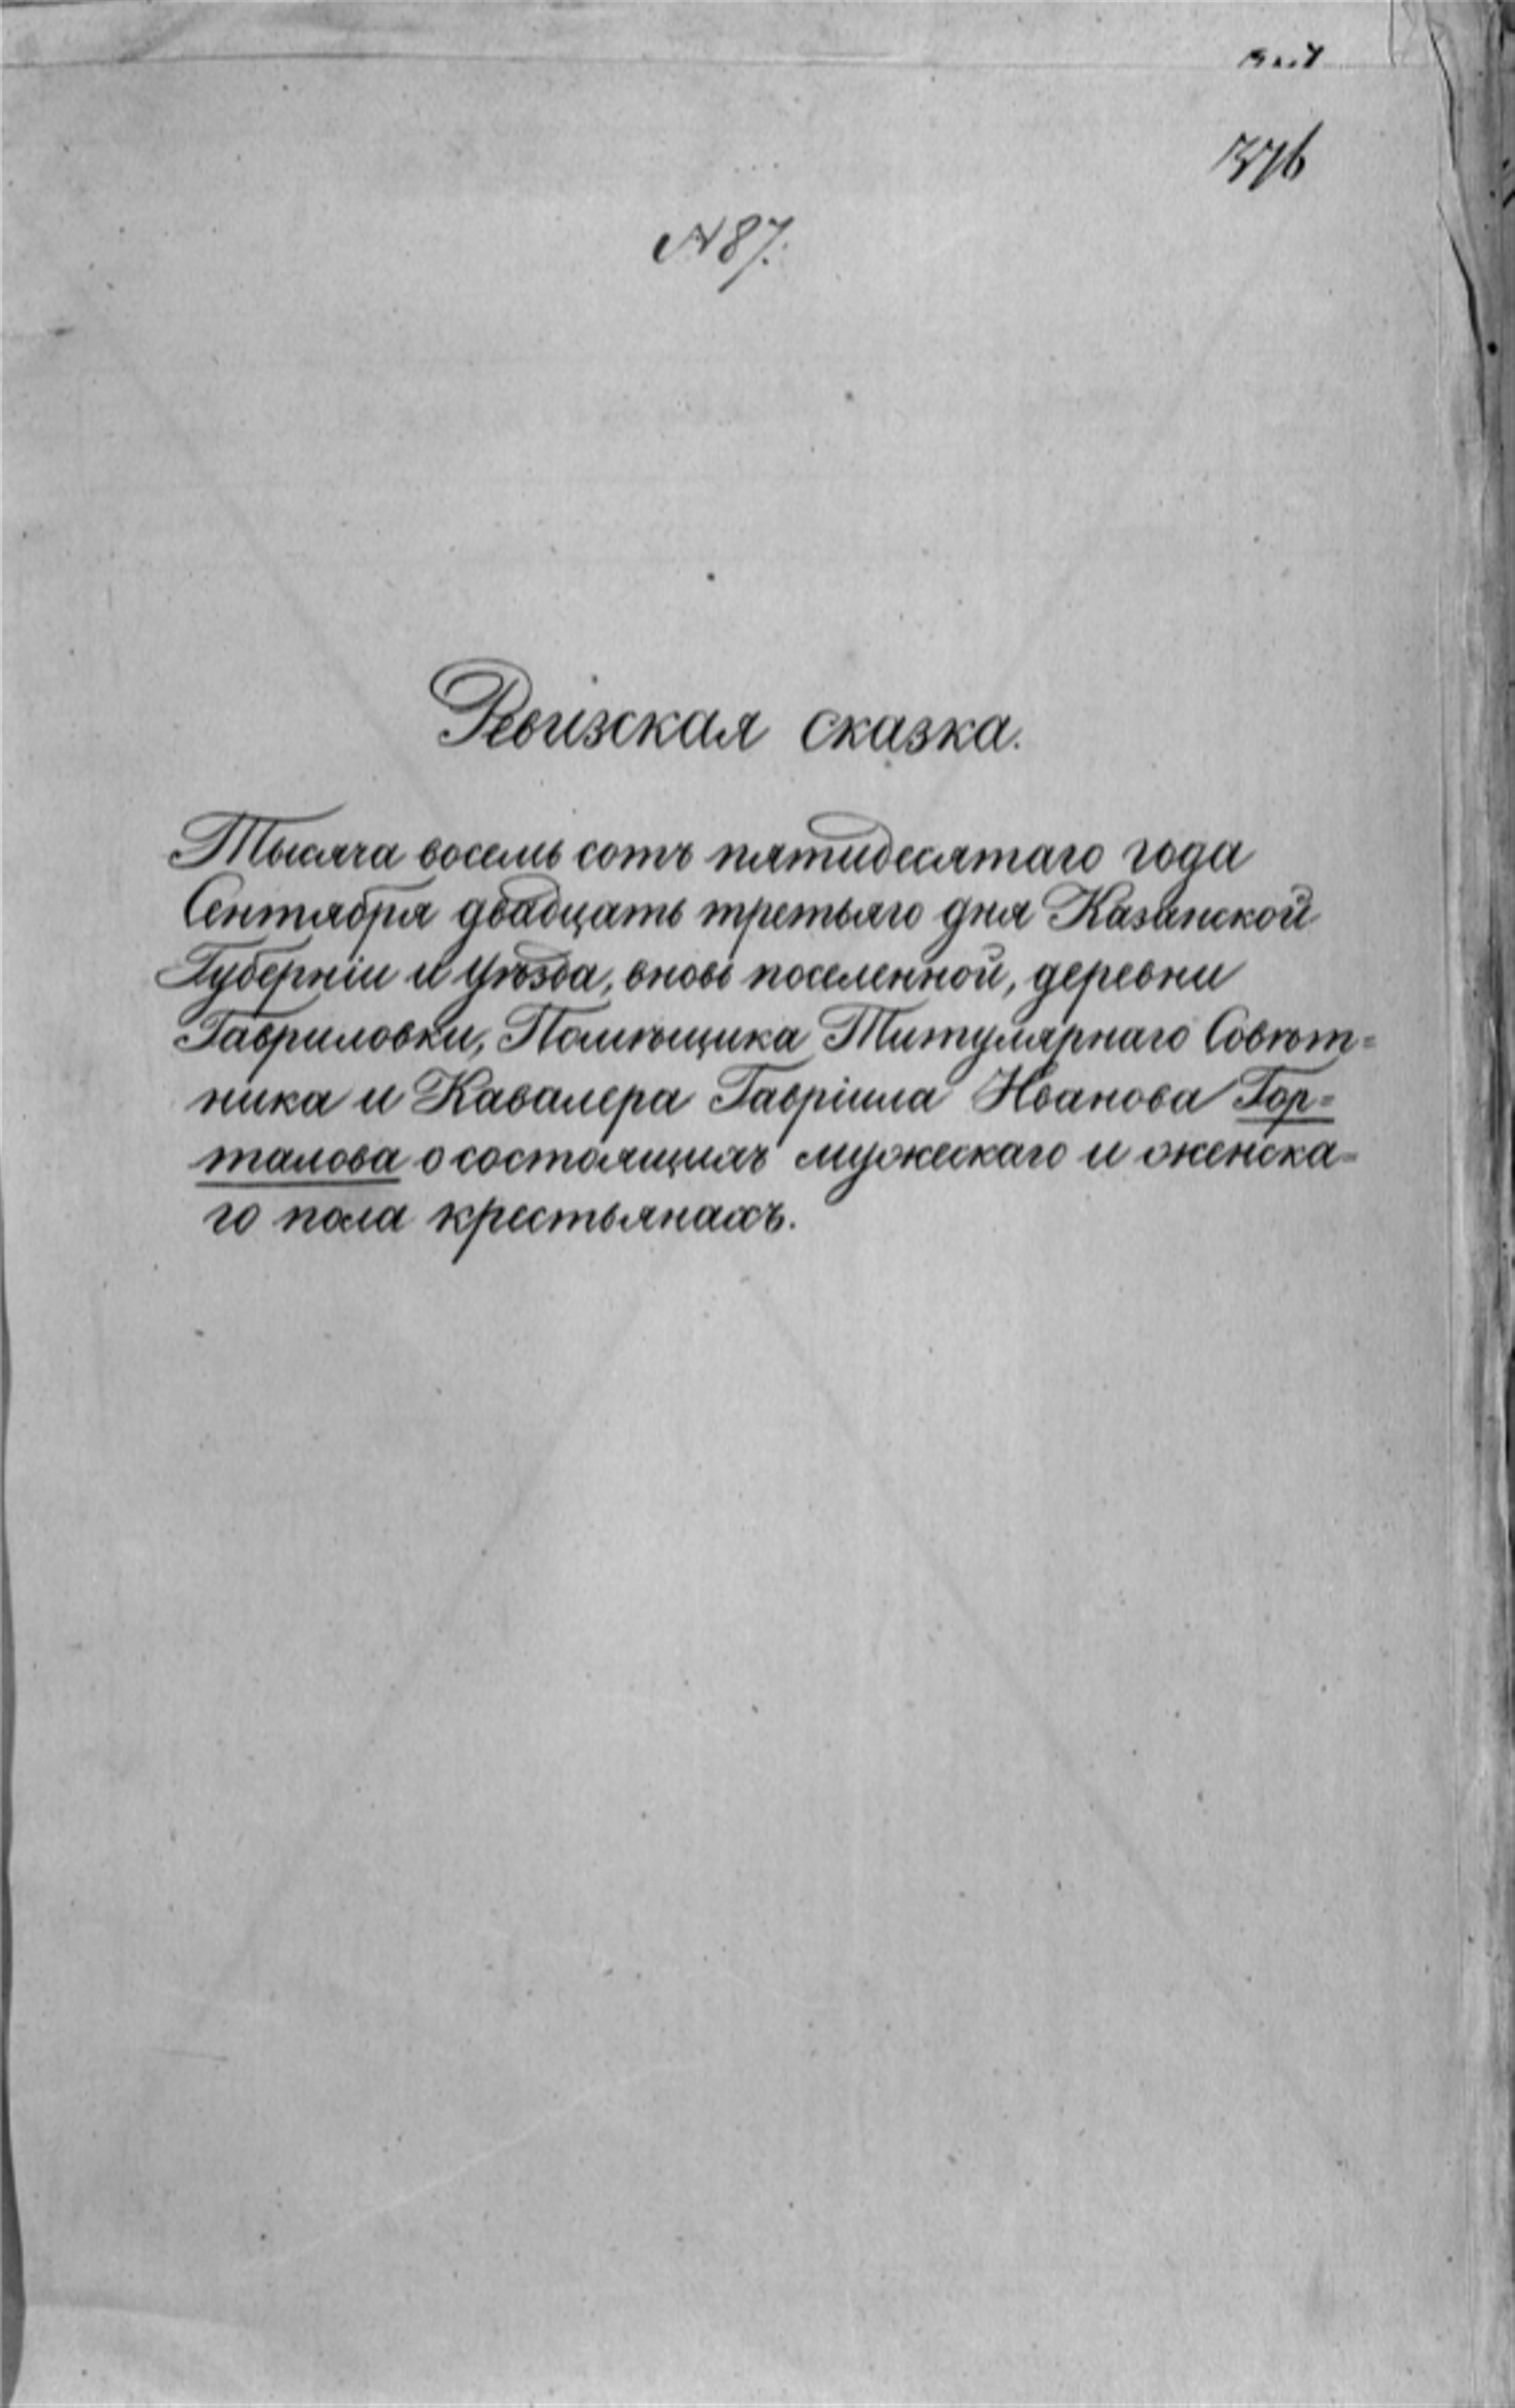 376
№ 87.
Ревизская сказка.
Тысяча восемь сотъ пятидесятаго года
Сентября двадцать третьяго дня Казанской
Губерніи и Уѣзда, вновь поселенной, деревни
Гавриловки, Помѣщика Титулярнаго Совѣт=
ника и Кавалера Гавріила Иванова Гор=
талова о состоящихъ мужескаго и женска=
го пола крестьянахъ.